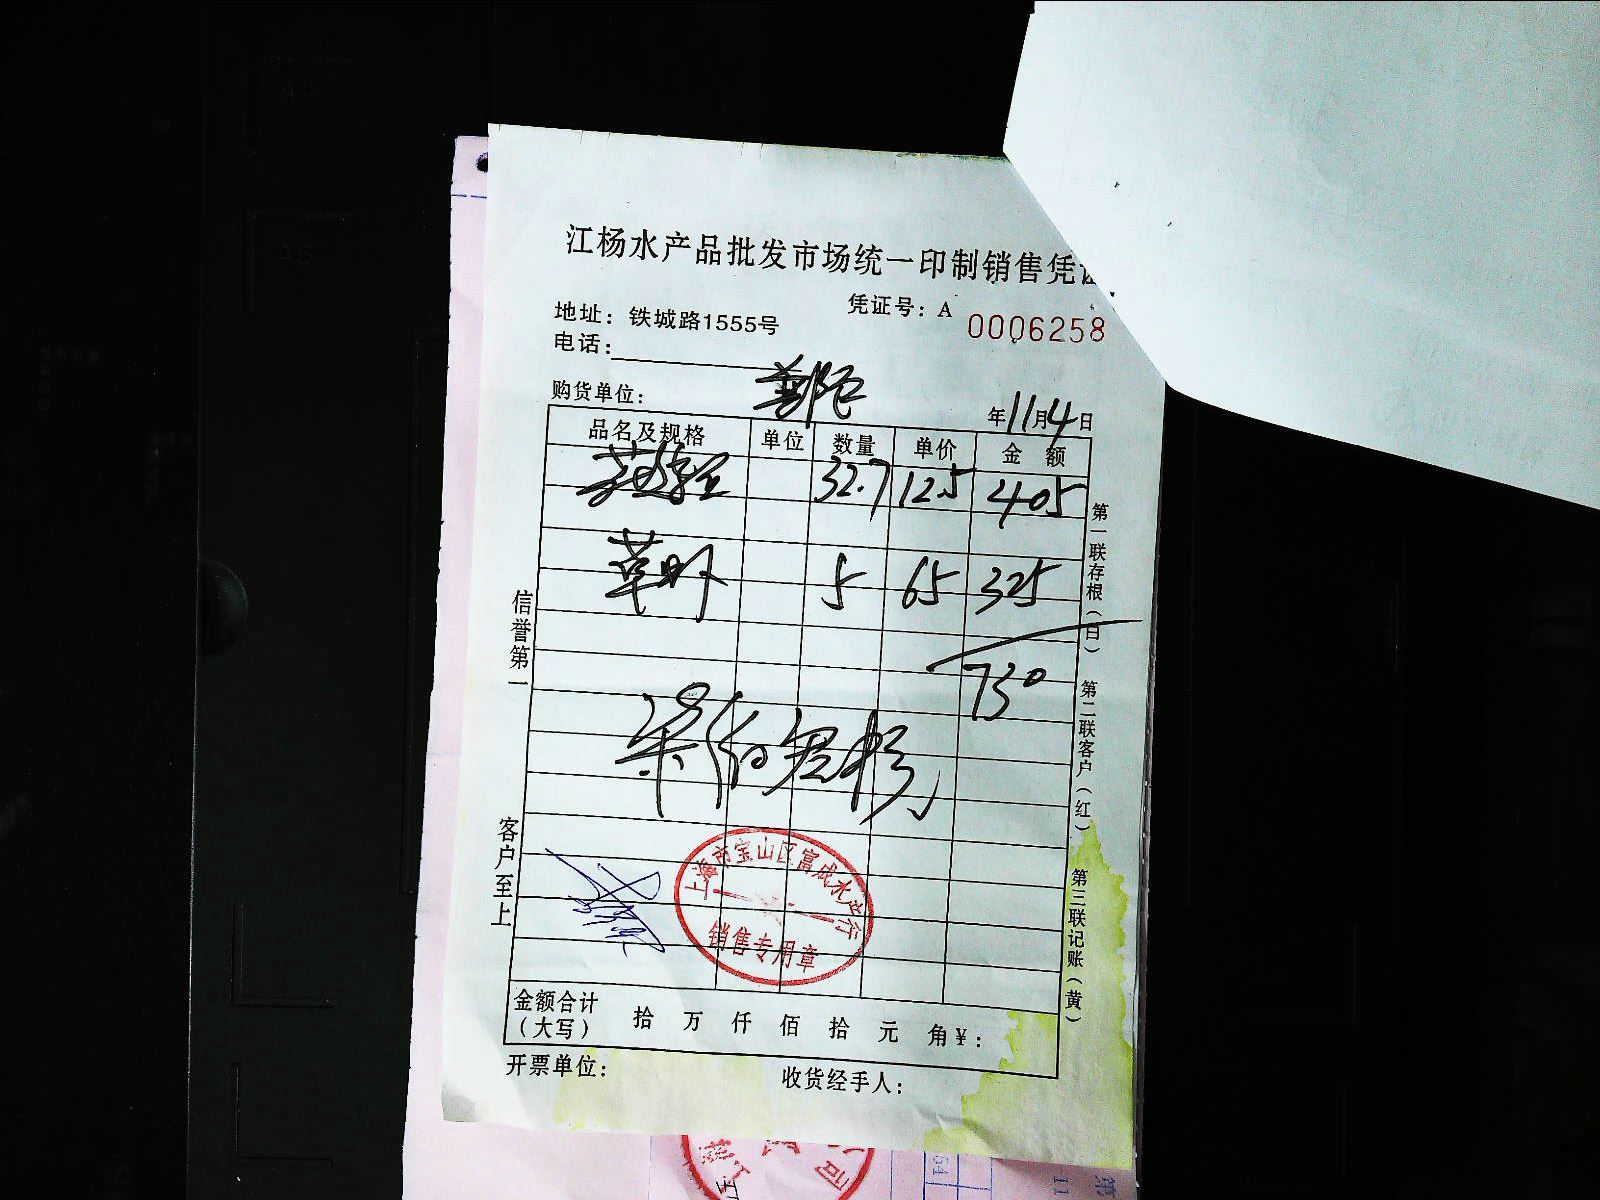 江杨水产品批发市场统一印制销售凭证
凭证号：A 0006258
地址：铁城路1555号
电话：
购货单位：
年11月4日
品名及规格 单位 数量 单价 金额
32.7 12.5 405
草虾 5 65 325
730
信誉第一
客户至上
第一联存根（白）
第二联客户（红）
第三联记账（黄）
上海市宝山区富成水产行
销售专用章
金额合计（大写） 拾 万 仟 佰 拾 元 角 ¥：
开票单位： 收货经手人：